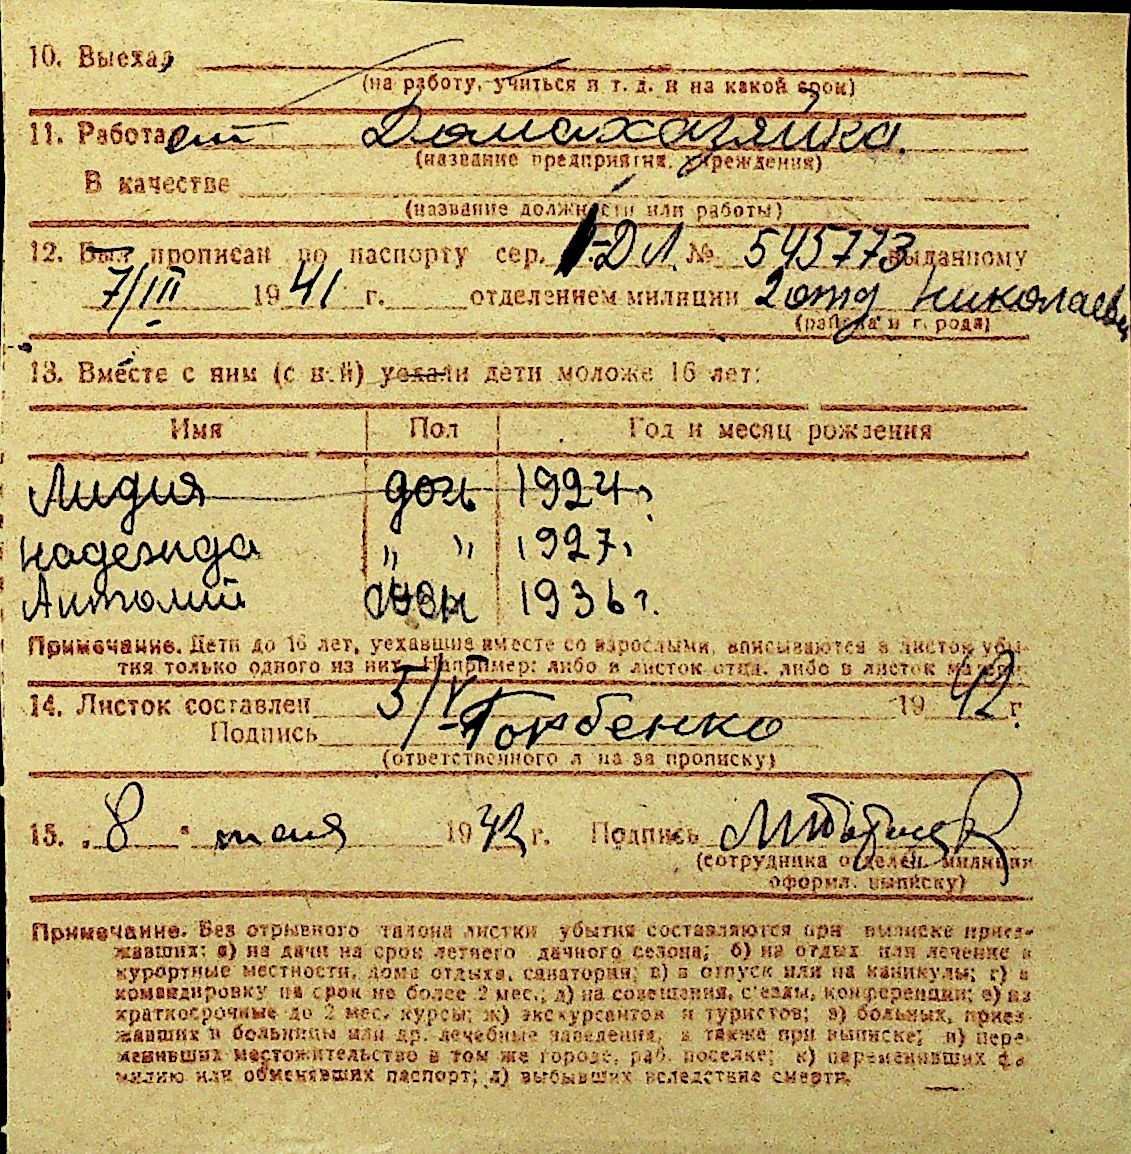 10. Выехал
(на работу, учиться и т. д. и на какой срок)
11. Работает Домахозяйка.
(название предприятия, учреждения)
В качестве
(название должности или работы)
12. Был прописан по паспорту сер. I-ДЛ № 545773 выданному
7/III 1941 г. отделением милиции 2 отд Николаев
(района и города)
13. Вместе с ним (с ней) уехали дети моложе 16 лет:
Имя Пол Год и месяц рождения
Лидия дочь 1924г.
Надежида " " 1927,
Антолий сын 1936 г.
Примечание. Дети до 16 лет, уехавшие вместе со взрослыми, вписываются в листок убы-
тия только одного из них. Например: либо в листок отца, либо в листок матери.
14. Листок составлен 5/V 1942 г.
Подпись Горбенко
(ответственного лица за прописку)
15. „8" мая 1942 г. Подпись
(сотрудника отделен. милиции
оформл. выписку)
Примечание. Без отрывного талона листки убытия составляются при выписке приез-
жавших: а) на дачи на срок летнего дачного сезона; б) на отдых или лечение в
курортные местности, дома отдыха, санатории; в) в отпуск или на каникулы; г) в
командировку на срок не более 2 мес.; д) на совещания, съезды, конференции; е) на
краткосрочные до 2 мес. курсы; ж) экскурсантов и туристов; з) больных, приез-
жавших в больницы или др. лечебные заведения, а также при выписке; и) пере-
менивших местожительство в том же городе, раб. поселке; к) переменивших фа-
милию или обменявших паспорт; л) выбывших вследствие смерти.